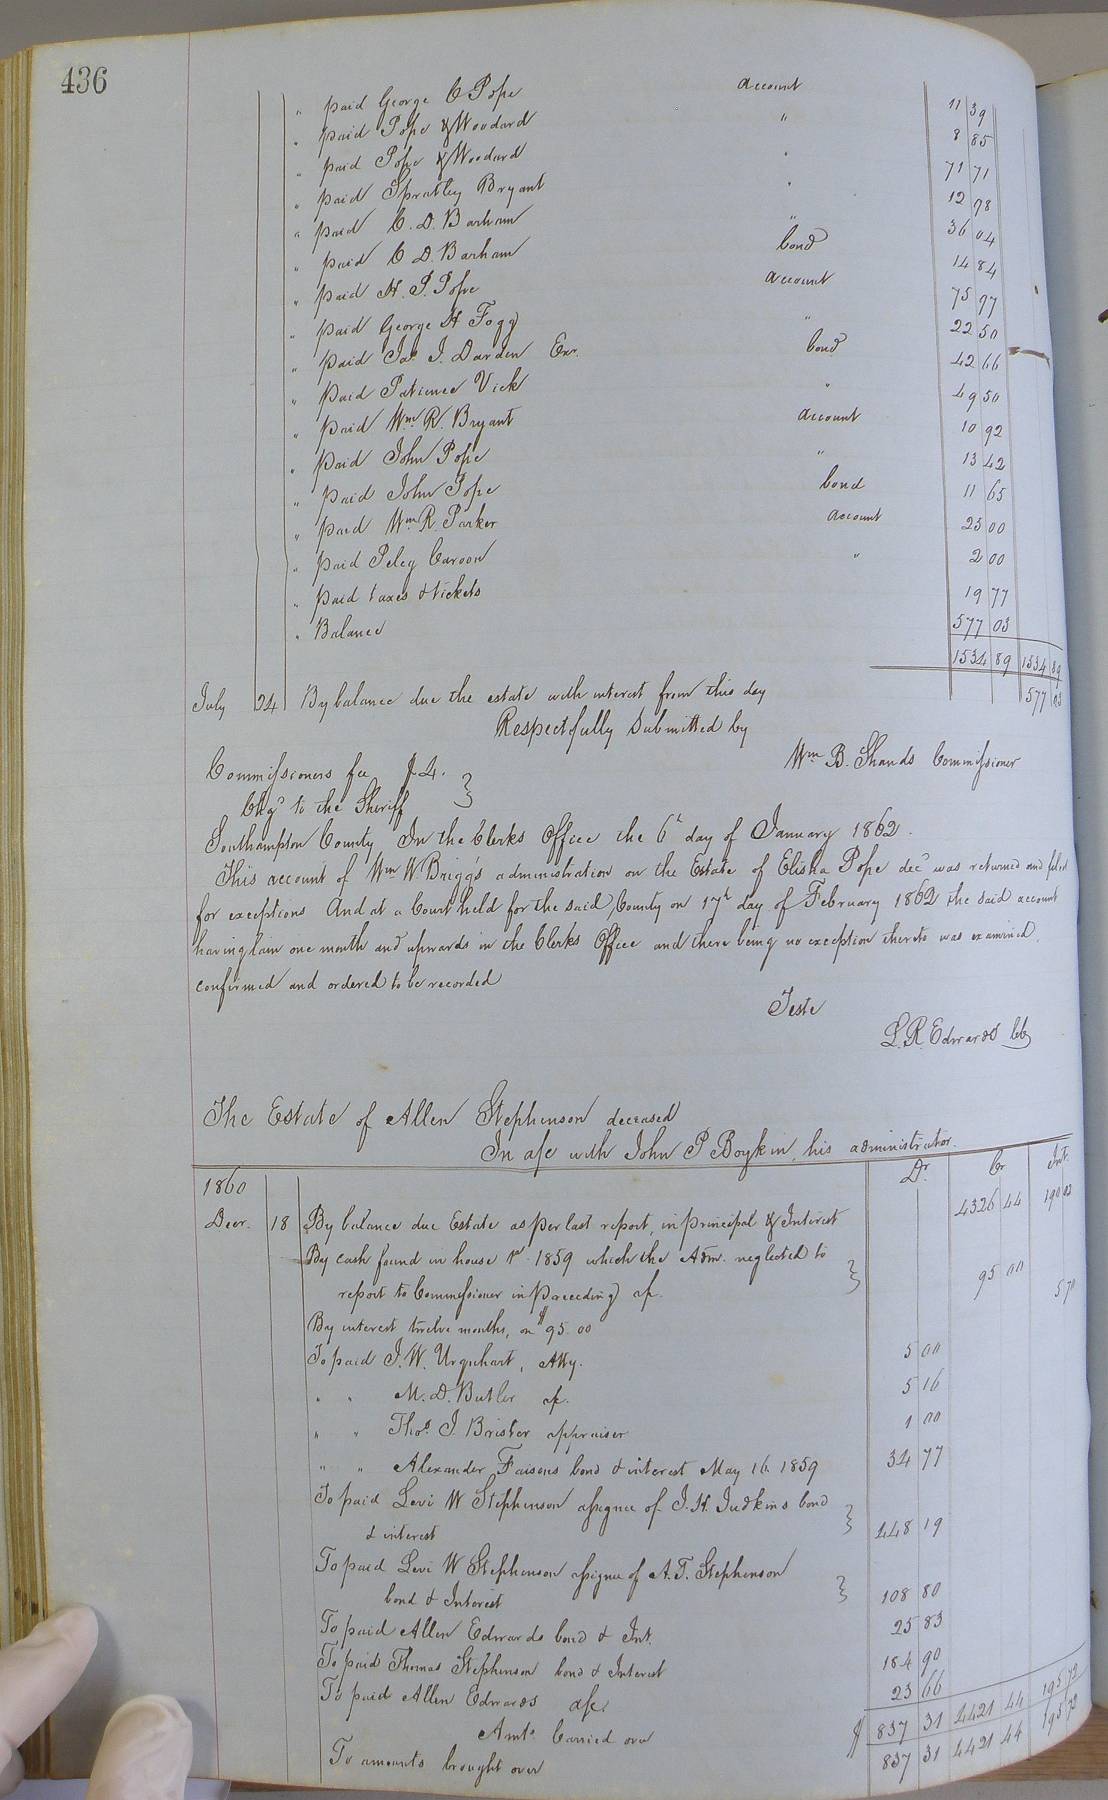 436
" paid George C Pope account 11 39
" paid Pope & Woodard " 8 85
" paid Pope & Woodard " 71 71
" paid Spratley Bryant " 12 78
" paid C. D. Barham " 36 04
" paid C D. Barham bond 14 84
" paid H. P. Pope account 75 77
" paid George H Fogg " 22 50
" paid Jas. J. Darden Exr. bond 42 66
" paid Patience Vick " 49 50
" paid Wm R. Bryant account 10 92
" paid John Pope " 13 42
" paid John Pope bond 11 65
" paid Wm R. Parker account 25 00
" paid Peleg Caroon " 2 00
" paid taxes & tickets 19 77
" Balance 577 03
1534 89 1534 89
July 24 By balance due the estate with interest from this day 577 03
Respectfully submitted by
Wm B. Shands Commissioner
Commissioners fee $4.
Chgd to the Sheriff
Southampton County In the Clerks Office the 6th day of January 1862.
This account of Wm W Brigg's administration on the Estate of Elisha Pope decd was returned and filed
for exceptions And at a Court held for the said County on 17th day of February 1862 the said account
having lain one month and upwards in the Clerks Office and there being no exception thereto was examined
confirmed and ordered to be recorded
Teste
L. R. Edwards Clk
The Estate of Allen Stephenson deceased
In a/c with John P Boykin, his administrator.
1860 Dr Cr Int.
Decr. 18 By balance due Estate as per last report, in principal & Interest 4326 44 190 02
By cash found in house 1859 which the Adm. neglected to
report to Commissioner in preceeding a/c. 95 00
By interest twelve months, on $95.00 5 70
To paid J. W. Urquhart, Atty. 5 00
" " M. D. Butler a/c. 5 16
" " Thos. J Brister appraiser 1 00
" " Alexander Faisons bond & interest May 16. 1859 34 77
To paid Levi W Stephenson assignee of J. H. Judkins bond
& interest 448 19
To paid Levi W Stephenson assignee of A. T. Stephenson
bond & Interest 108 80
To paid Allen Edwards bond & Int. 25 83
To paid Thomas Stephenson bond & Interest 184 90
To paid Allen Edwards a/c. 23 66
Amts. Carried over $ 837 31 4421 44 195 72
To amounts brought over 837 31 4421 44 195 72